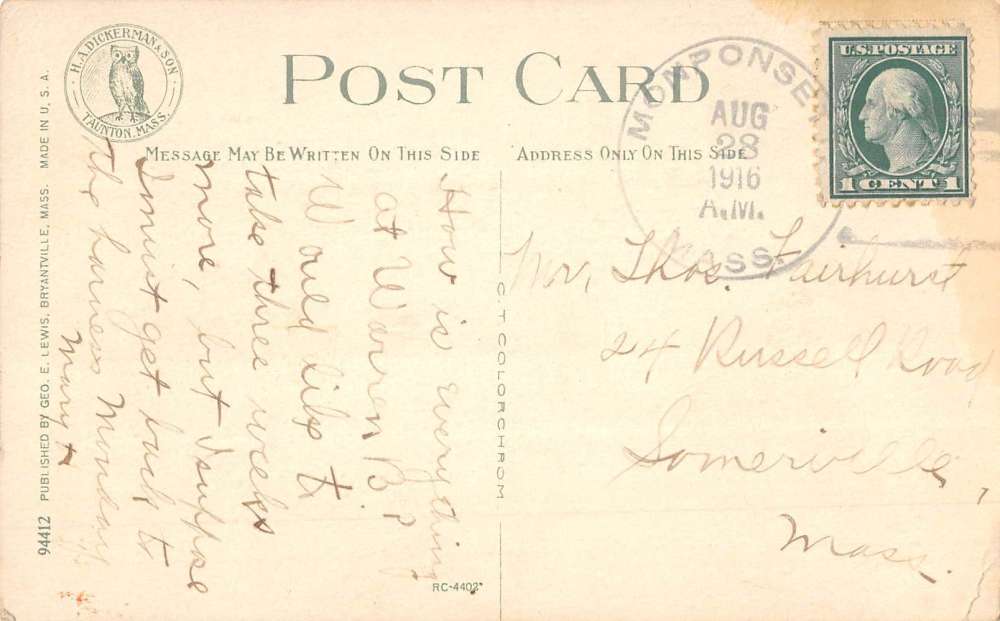 H. A. DICKERMAN & SON
TAUNTON, MASS.
POST CARD
MESSAGE MAY BE WRITTEN ON THIS SIDE
ADDRESS ONLY ON THIS SIDE
MONPONSE
AUG
28
1916
A.M.
MASS.
U.S. POSTAGE
1 CENT 1
94412 PUBLISHED BY GEO. E. LEWIS, BRYANTVILLE, MASS. MADE IN U. S. A.
How is everything
at Warren B.?
Would like to
take three weeks
more, but I suppose
I must get back to
the harness Monday
Mary
C. T. COLORCHROM
RC-4402
Mr. Thos. Fairhurst
24 Russell Road
Somerville,
Mass.